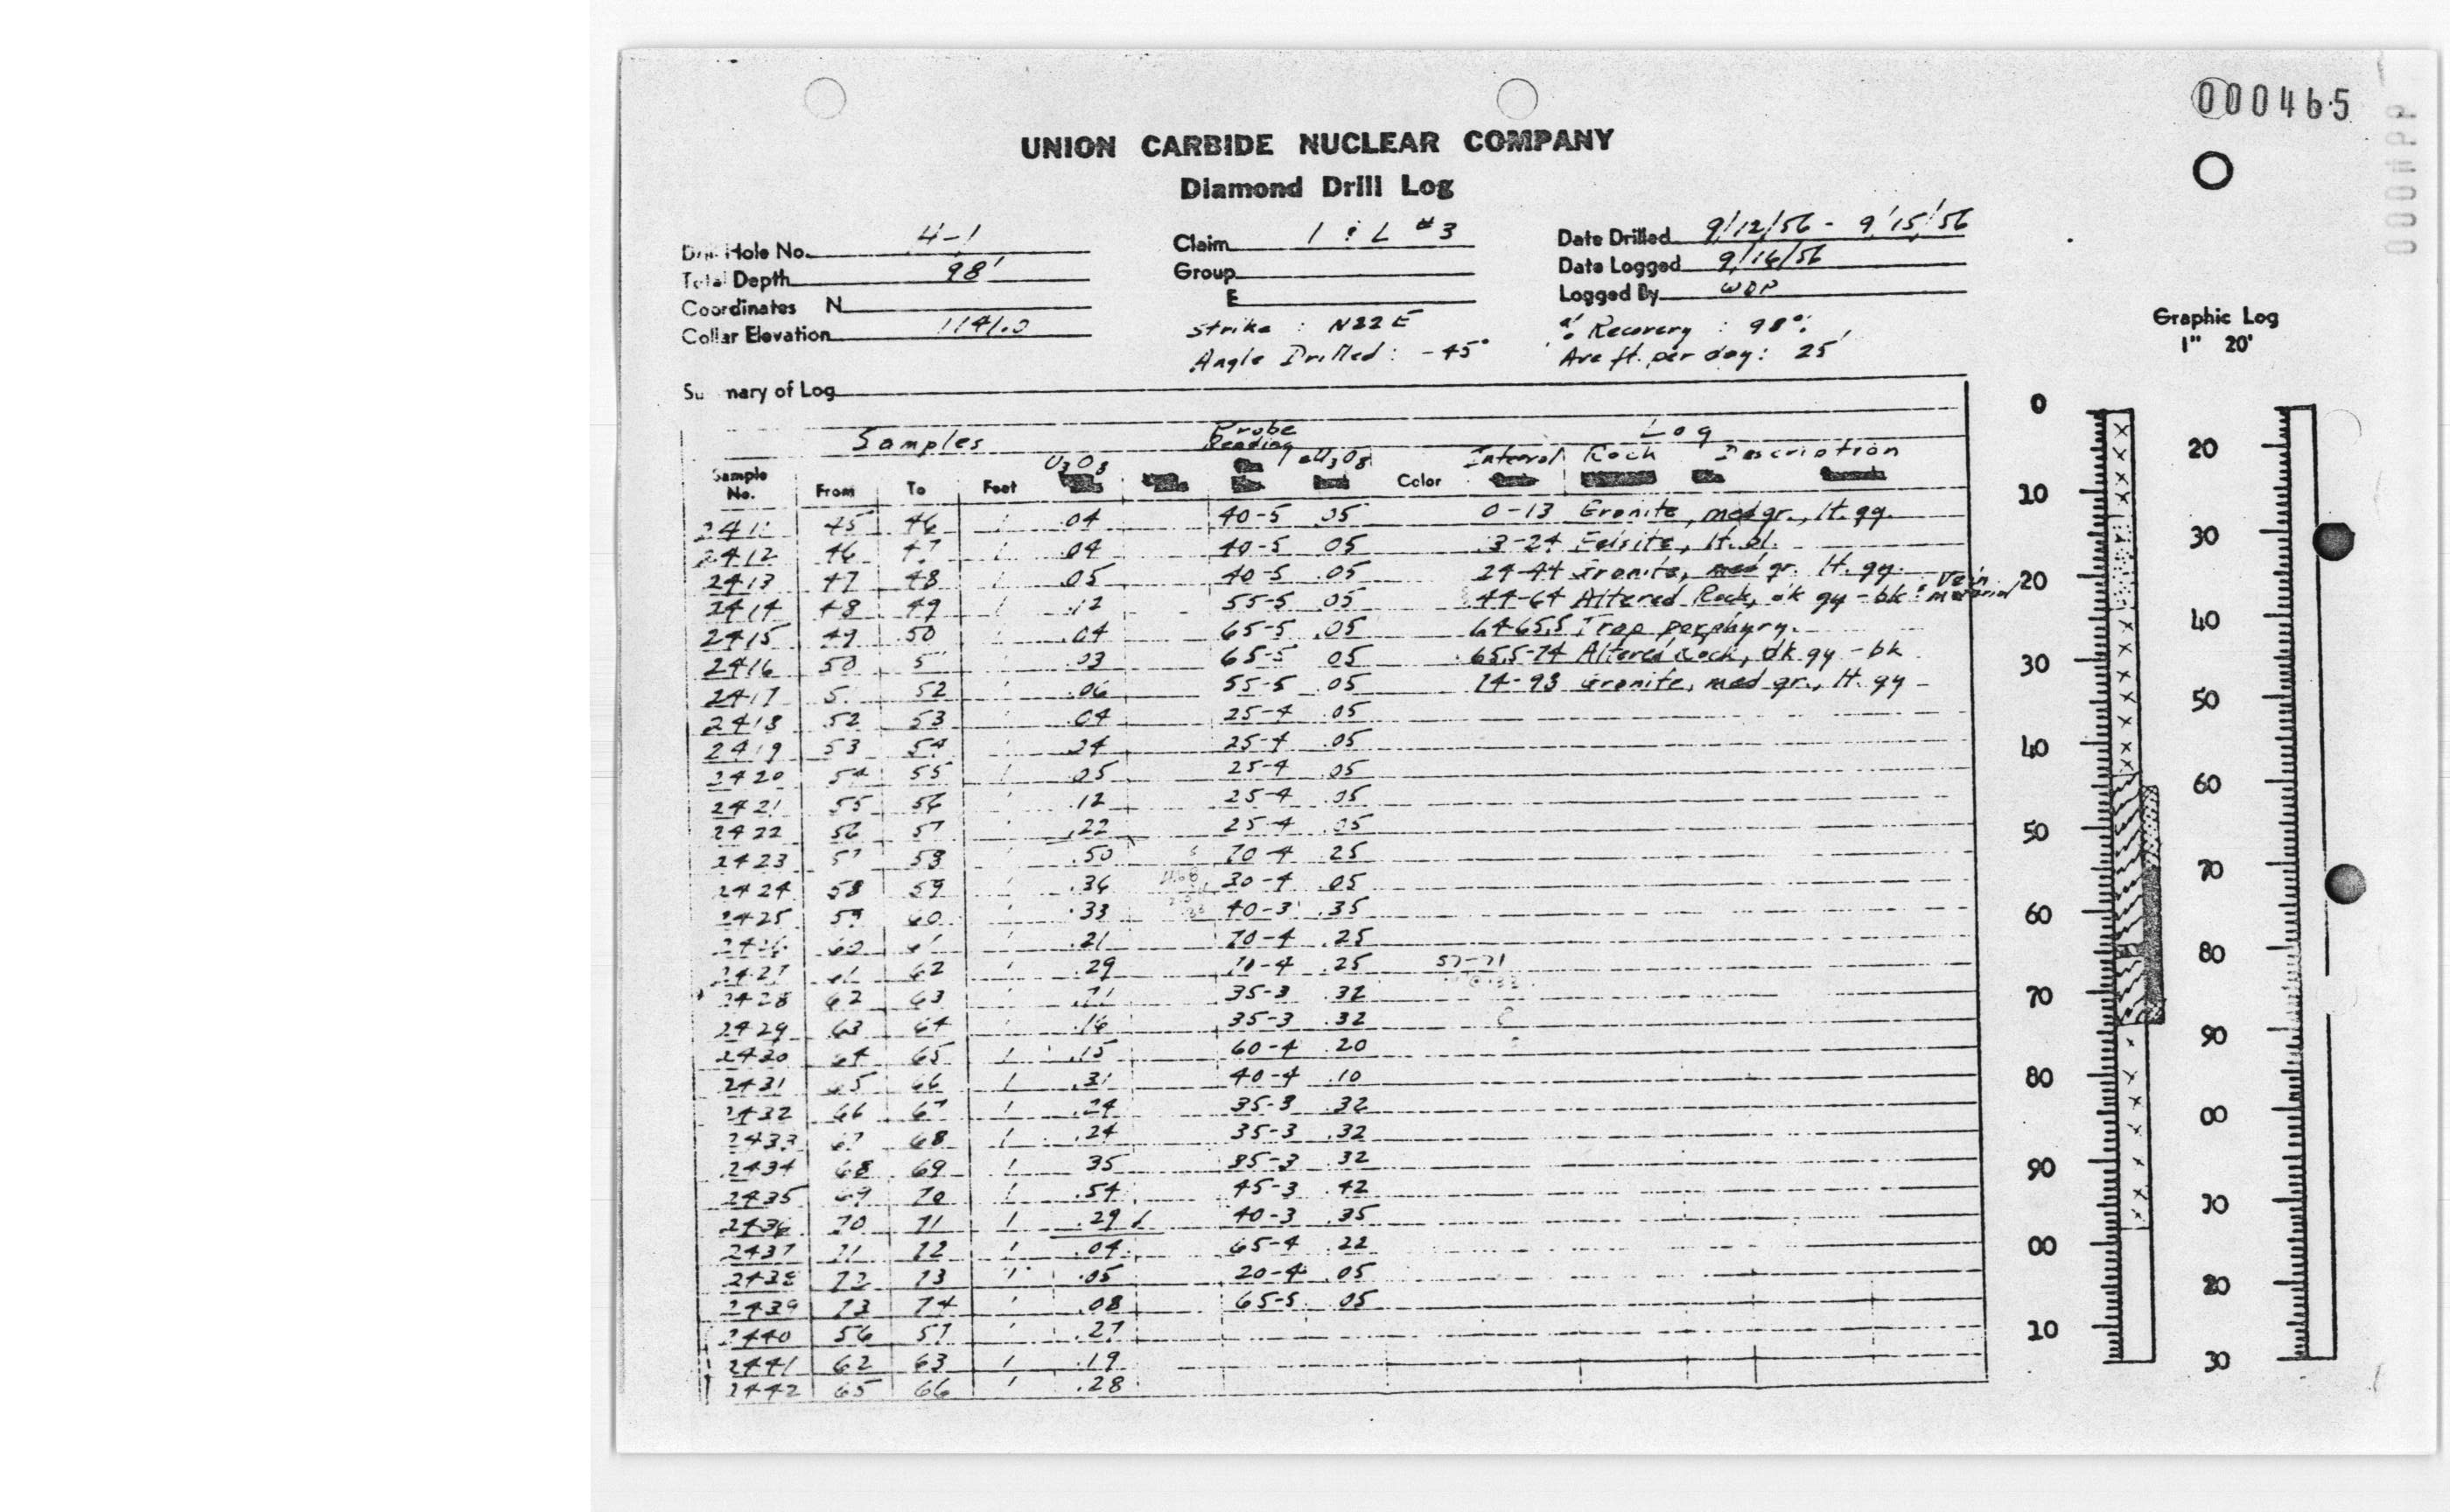 000465
UNION CARBIDE NUCLEAR COMPANY
Diamond Drill Log
Hole No. 4-1 Claim 1 & L #3 Date Drilled 9/12/56 - 9/15/56
Total Depth 98' Group Date Logged 9/16/56
Coordinates N E Logged By
Collar Elevation 1141.0 Strike : N22E % Recovery : 98%
Angle Drilled : -45° Ave ft. per day : 25'
Graphic Log
1" 20'
Su nary of Log
Samples Probe Reading Log
Sample No. From To Feet U3O8 eU3O8 Color Interval Rock Description
2411 45 46 1 .04 40-5 .05 0-13 Granite, med gr., lt. gy.
2412 46 47 1 .04 40-5 .05 3-24 Felsite, lt.
2413 47 48 1 .05 40-5 .05 24-44 Granite, med gr. lt. gy.
2414 48 49 1 .12 55-5 .05 44-64 Altered Rock, dk gy - bk & vein material
2415 49 50 1 .04 65-5 .05 64-65.5 Trap porphyry.
2416 50 5 1 .03 65-5 .05 65.5-74 Altered Rock, dk gy - bk
2417 5 52 1 .06 55-5 .05 74-98 Granite, med gr., lt. gy
2418 52 53 1 .04 25-4 .05
2419 53 54 1 .24 25-4 .05
2420 54 55 1 .05 25-4 .05
2421 55 56 1 .12 25-4 .05
2422 56 57 1 .22 25-4 .05
2423 57 58 1 .50 70-4 .25
2424 58 59 1 .36 30-4 .05
2425 59 60 1 .33 40-3 .35
2426 60 61 1 .21 70-4 .25
2427 61 62 1 .29 70-4 .25 57-71
2428 62 63 1 .71 35-3 .32
2429 63 64 1 .16 35-3 .32
2430 64 65 1 .15 60-4 .20
2431 65 66 1 .31 40-4 .10
2432 66 67 1 .24 35-3 .32
2433 67 68 1 .24 35-3 .32
2434 68 69 1 .35 35-3 .32
2435 69 70 1 .54 45-3 .42
2436 70 71 1 .29 40-3 .35
2437 71 72 1 .04 65-4 .22
2438 72 73 1 .05 20-4 .05
2439 73 74 1 .08 65-5 .05
2440 56 57 1 .27
2441 62 63 1 .19
2442 65 66 1 .28
0
10
20
30
40
50
60
70
80
90
00
10
20
30
40
50
60
70
80
90
00
10
20
30